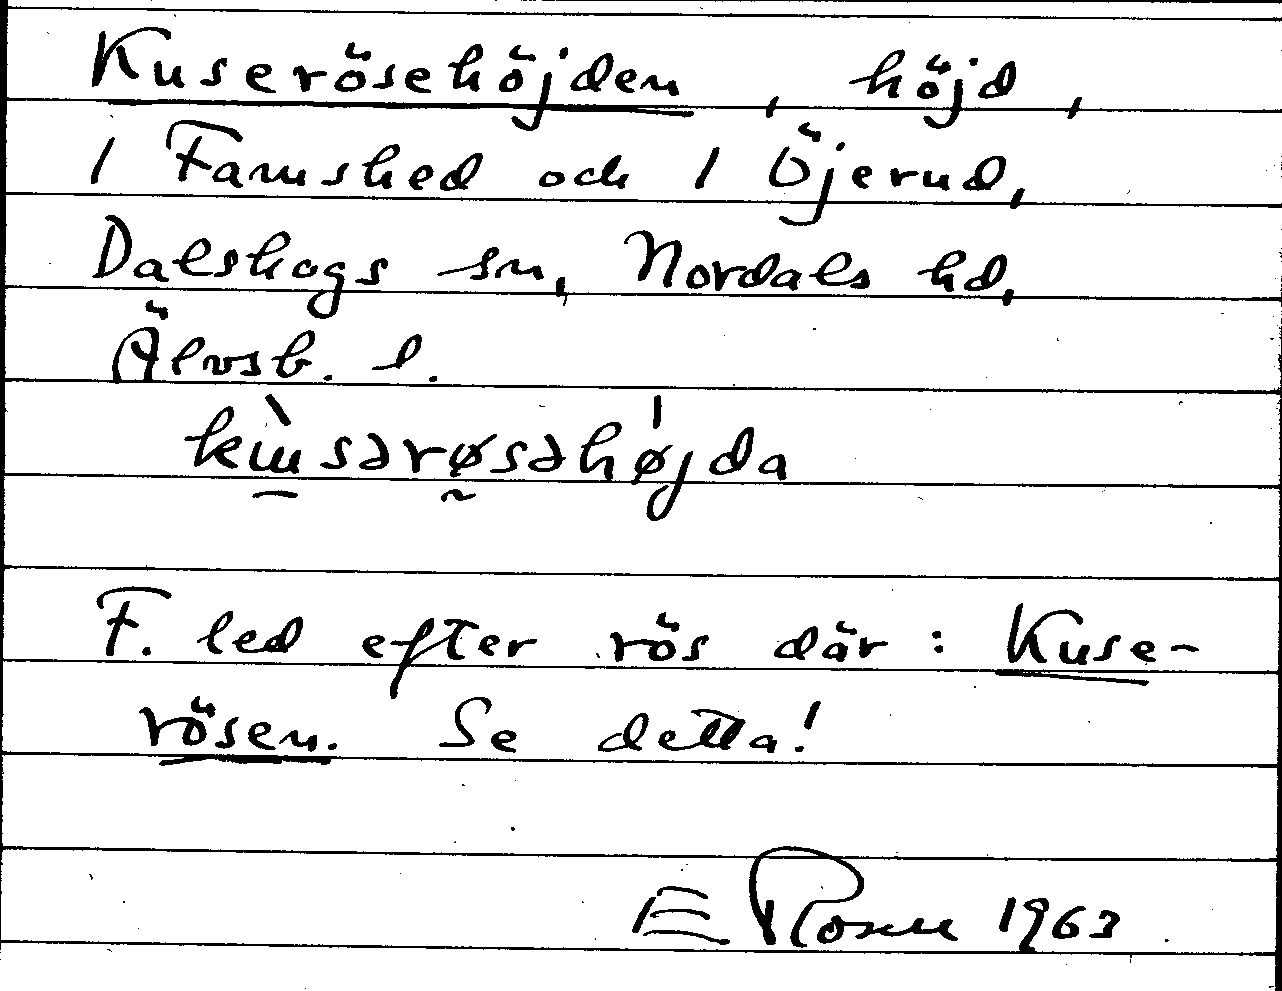 Kuserösehöjden, höjd,
1 Famshed och 1 Öjerud,
Dalskogs sn, Nordals hd,
Älvsb. l.
kɯ̀sərøsəhøjda
F. led efter rös där: Kuse-
rösen. Se detta!
E Rosen 1963